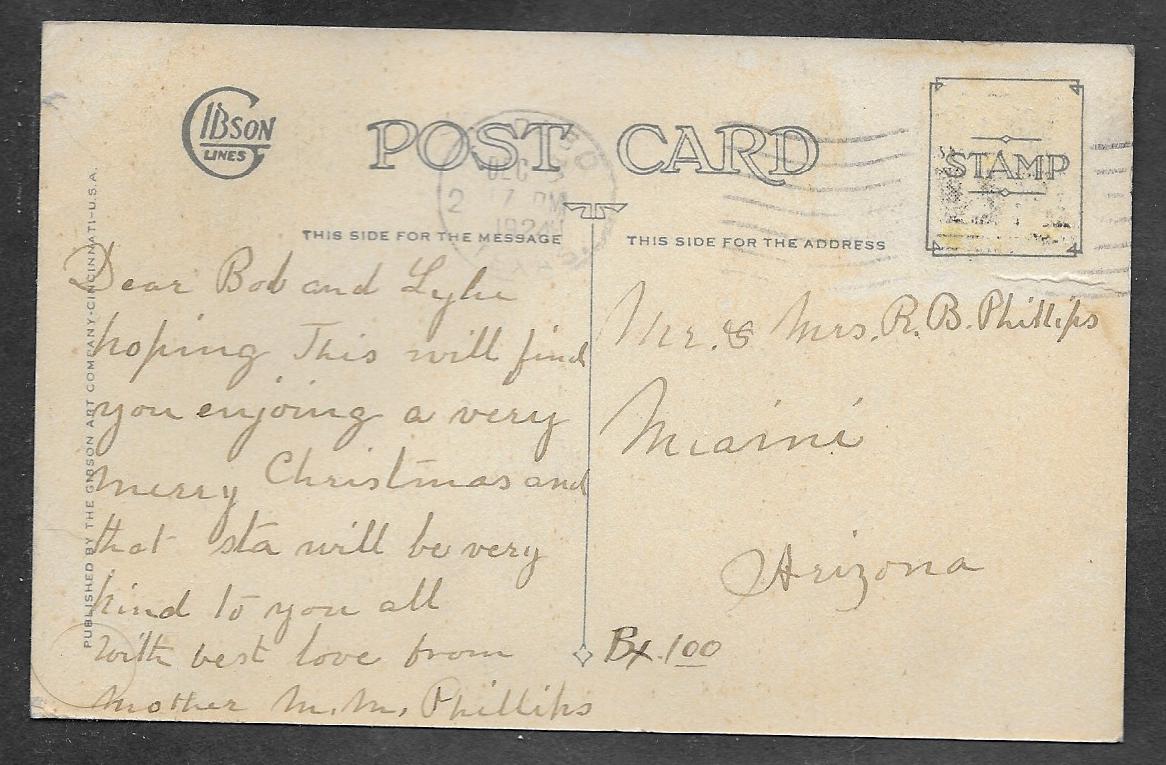 GIBSON
LINES
POST CARD
STAMP
DEC
2 7 PM
1924
THIS SIDE FOR THE MESSAGE
THIS SIDE FOR THE ADDRESS
PUBLISHED BY THE GIBSON ART COMPANY-CINCINNATI-U.S.A.
Dear Bob and
hoping This will find
you enjoing a very
merry Christmas and
that sta will be very
kind to you all
with best love from
Mother M. M. Phillips
Mr. & Mrs. R. B. Phillips
Miami
Arizona
Bx. 100